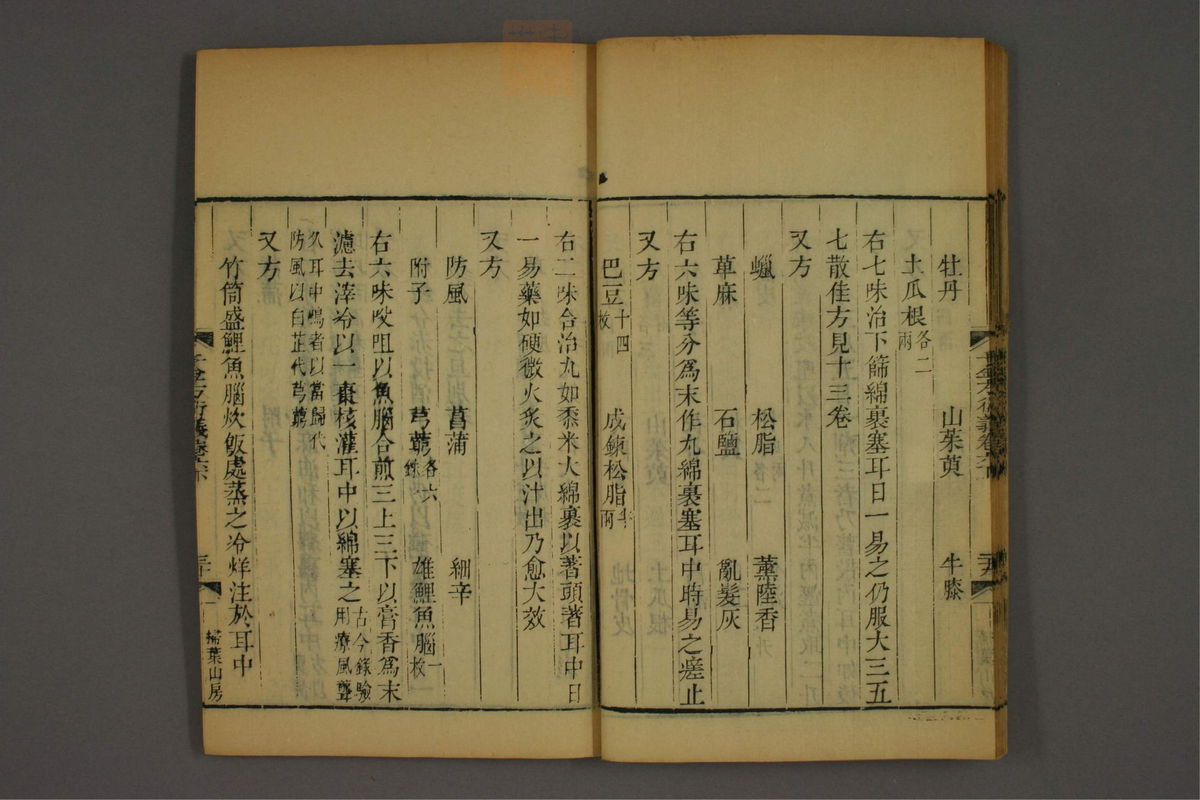 牡丹 山茱萸 牛膝
土瓜根各二兩
右七味治下篩綿裹塞耳日一易之仍服大三五
七散佳方見十三卷
又方
蠟 松脂 薰陸香
萆麻 石鹽 亂髮灰
右六味等分爲末作丸綿裹塞耳中時易之瘥止
又方
巴豆十四枚 成鍊松脂半兩
右二味合治丸如黍米大綿裹以著頭著耳中日
一易藥如硬微火炙之以汁出乃愈大效
又方
防風 菖蒲 細辛
附子 芎藭各六銖 雄鯉魚腦一枚
右六味㕮咀以魚腦合煎三上三下以膏香爲末
濾去滓冷以一棗核灌耳中以綿塞之古今錄驗用療風聾
久耳中鳴者以當歸代
防風以白芷代芎藭
又方
竹筒盛鯉魚腦炊飯處蒸之冷烊注於耳中
千金方衍義卷六下
掃葉山房